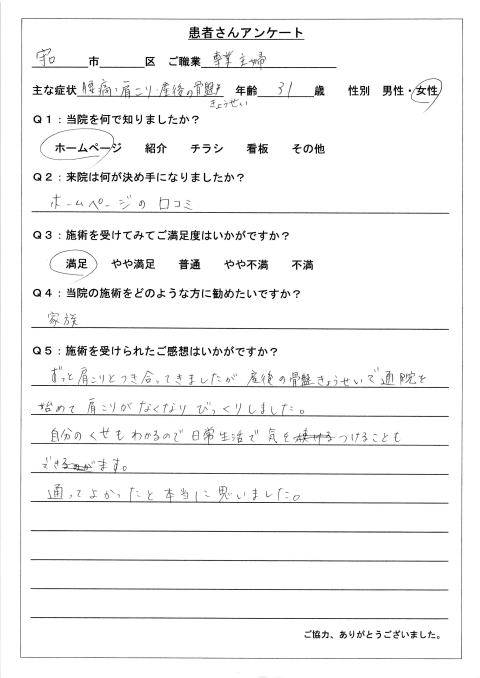 患者さんアンケート
守口 市 区 ご職業 専業主婦
主な症状 腰痛・肩こり・産後の骨盤きょうせい 年齢 31 歳 性別 男性・女性
Q1：当院を何で知りましたか？
ホームページ 紹介 チラシ 看板 その他
Q2：来院は何が決め手になりましたか？
ホームページの口コミ
Q3：施術を受けてみてご満足度はいかがですか？
満足 やや満足 普通 やや不満 不満
Q4：当院の施術をどのような方に勧めたいですか？
家族
Q5：施術を受けられたご感想はいかがですか？
ずっと肩こりとつき合ってきましたが 産後の骨盤きょうせいで通院を
始めて 肩こりがなくなり びっくりしました。
自分のくせもわかるので日常生活で気をつけることも
できます。
通ってよかったと本当に思いました。
ご協力、ありがとうございました。